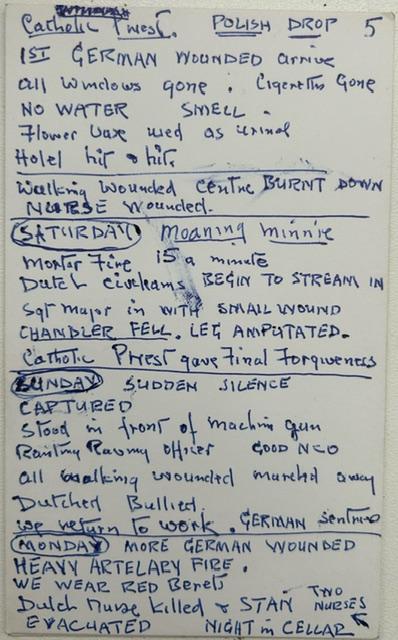 Catholic Priest. POLISH DROP 5
1ST GERMAN WOUNDED arrive
all windows gone. Cigerettes Gone
NO WATER SMELL.
Flower Vase used as urinal
Hotel hit & hit.
Walking Wounded Centre BURNT DOWN
NURSE Wounded.
SATURDAY moaning minnie
Mortar Fire 15 a minute
Dutch civelians BEGIN TO STREAM IN
Sgt Major in WITH SMALL WOUND
CHANDLER FELL. LEG AMPUTATED.
Catholic Priest gave Final Forgiveness
SUNDAY SUDDEN SILENCE
CAPTURED
Stood in front of machin gun
Ranting Raving officer GOOD NCO
all walking wounded marched away
Dutched Bullied
We return to work. GERMAN Sentries
MONDAY MORE GERMAN WOUNDED
HEAVY ARTELARY FIRE.
WE WEAR RED Berets
Dutch Nurse Killed & STAN TWO NURSES
EVACUATED NIGHT in CELLAR